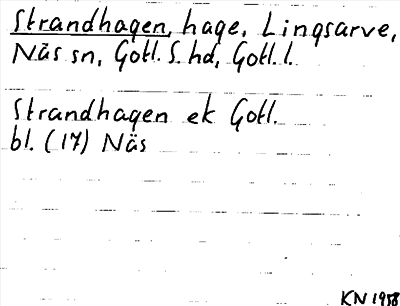 Strandhagen, hage, Lingsarve,
Näs sn, Gotl. S. hd, Gotl. l.
Strandhagen ek Gotl.
bl. (17) Näs
KN 1958